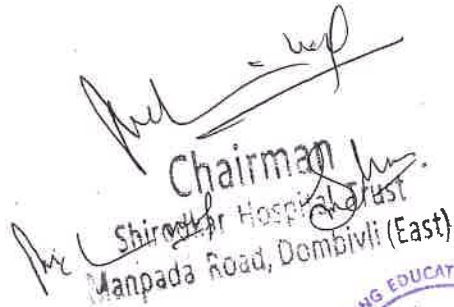 Chairman
Shirodkar Hospital Trust
Manpada Road, Dombivli (East)
NG EDUCAT